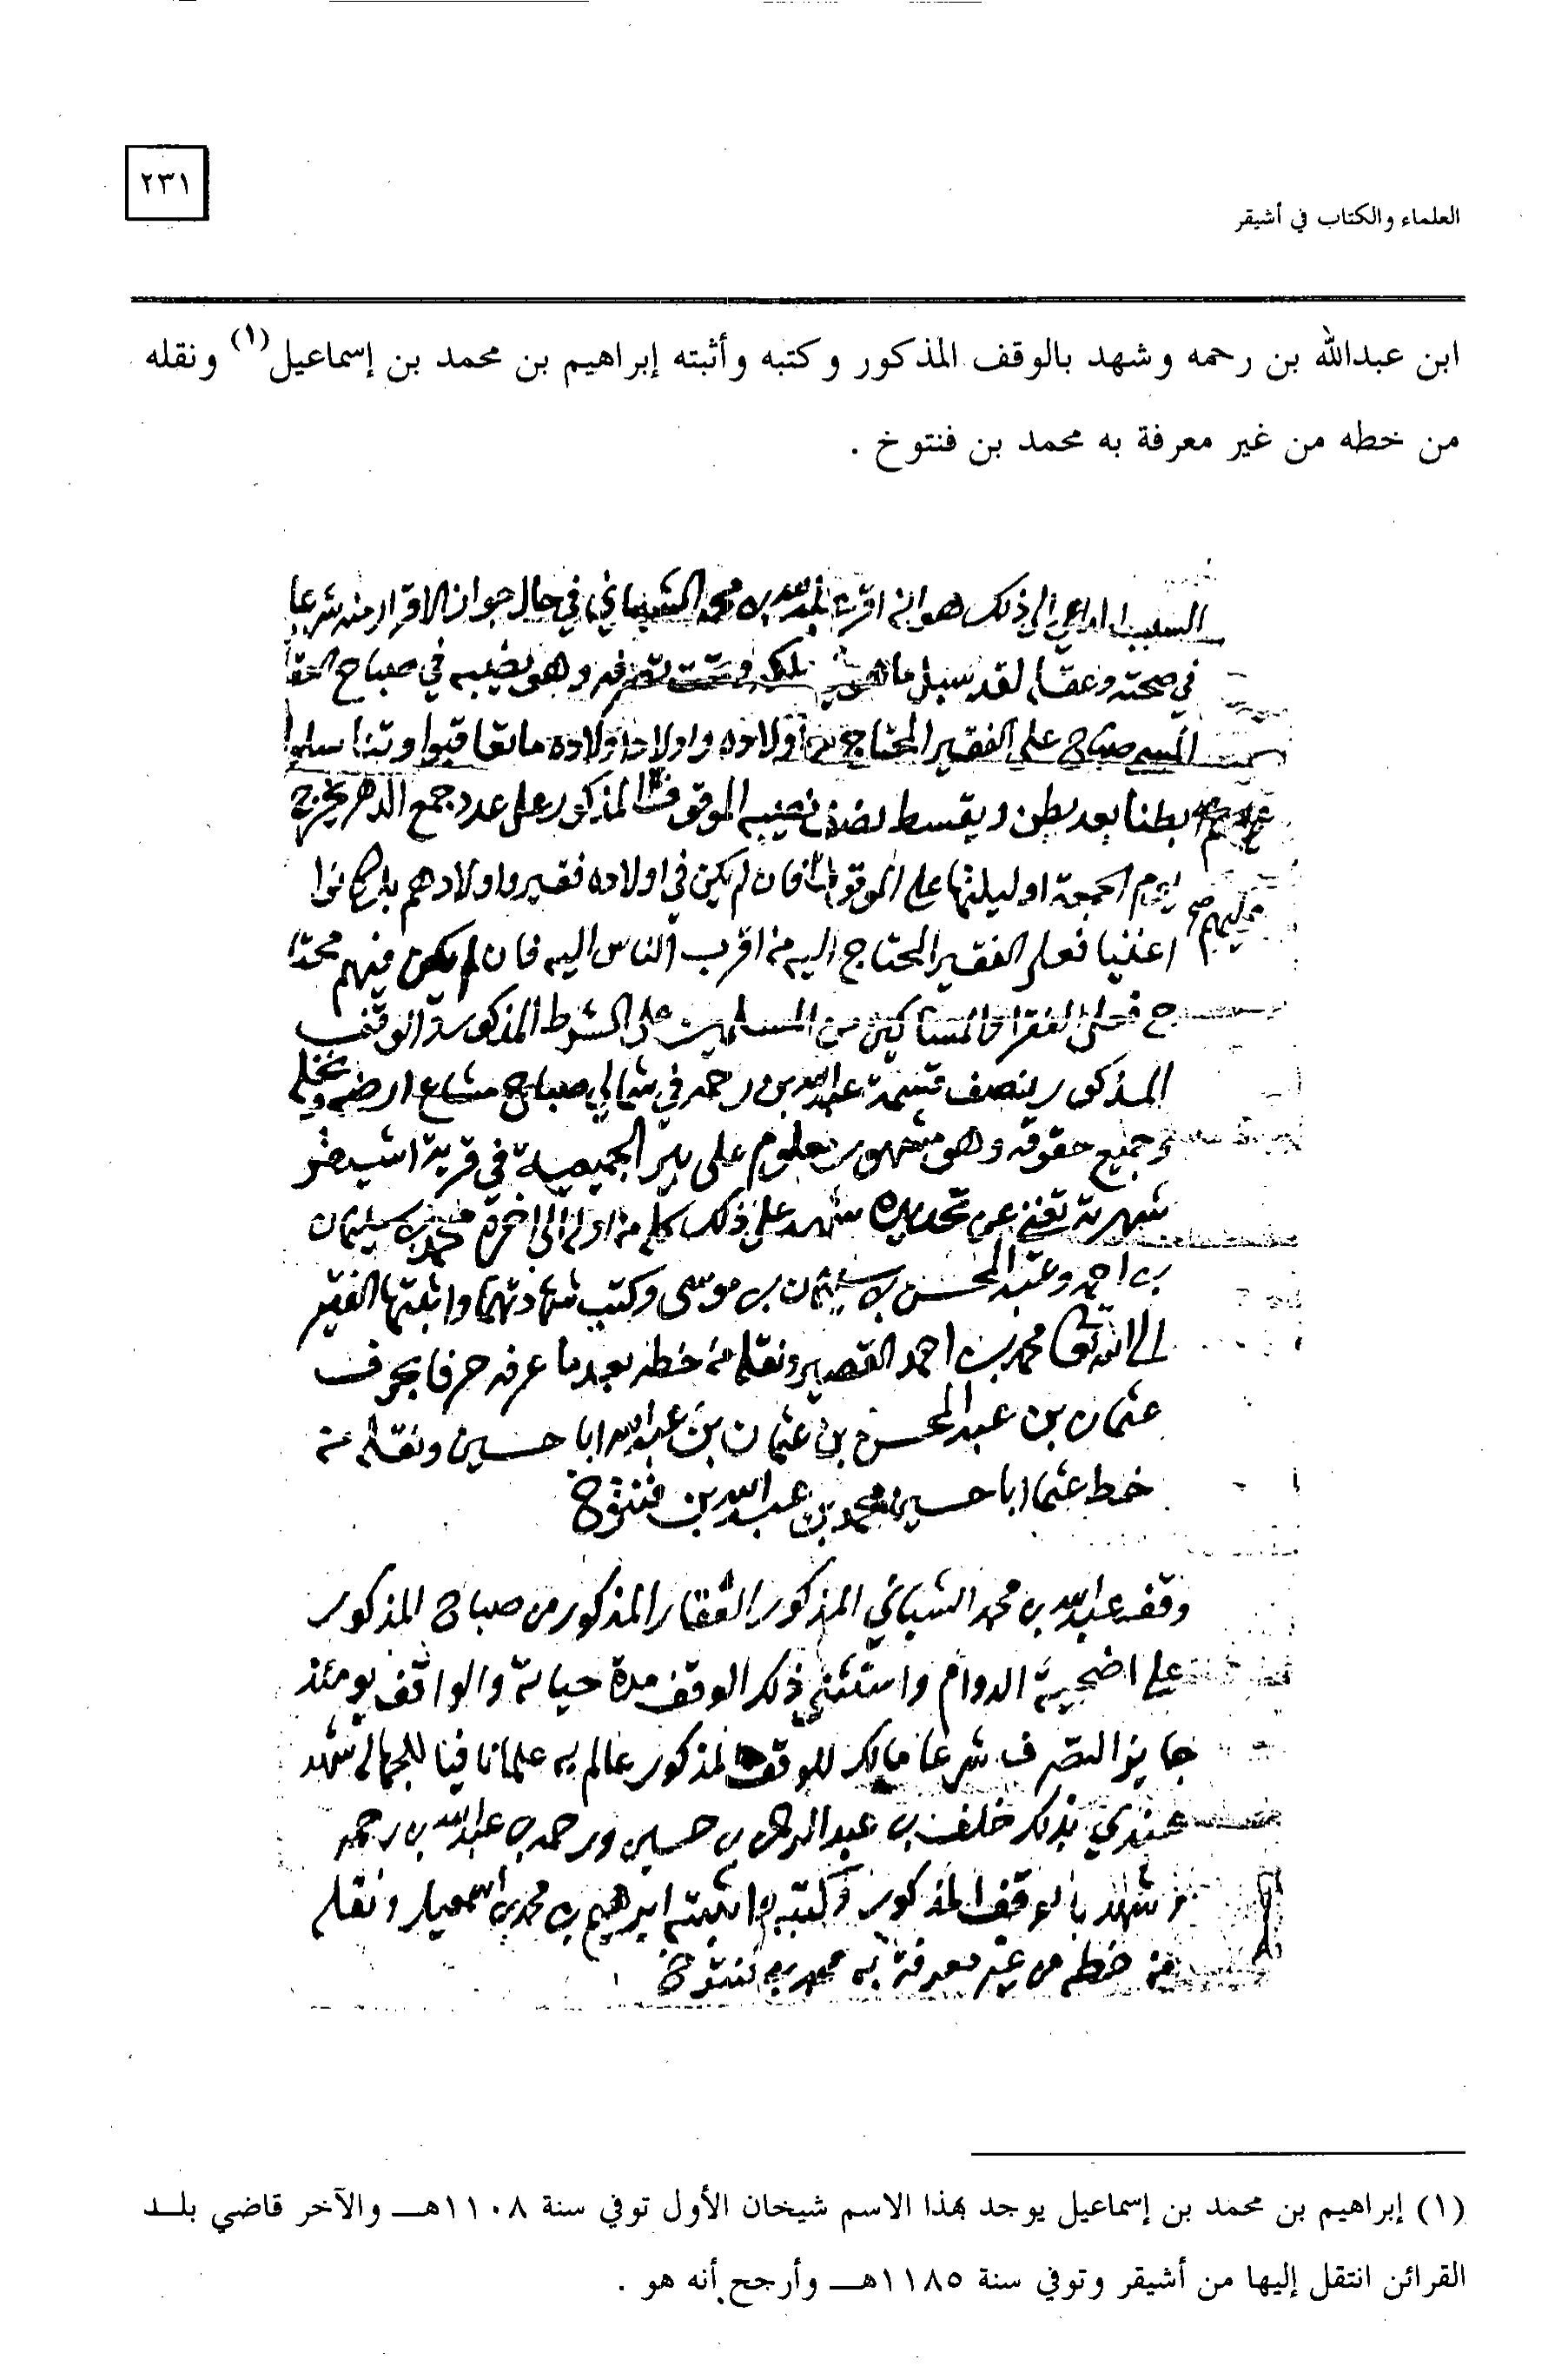 ٢٣١
العلماء والكتاب في أشيقر
ابن عبدالله بن رحمه وشهد بالوقف المذكور وكتبه وأثبته إبراهيم بن محمد بن إسماعيل(١) ونقله
من خطه من غير معرفة به محمد بن فنتوخ .
السبب الداعي الى ذلك هو انه اقر عبدالله بن محمد الشيباني في حال جواز الاقرار منه شرعا
في صحته وعقله لقد سبل ما هو ملكه وتحت تصرفه وهو نصيبه في صباح
المسمى صباح على الفقير المحتاج من أولاده واولاد اولاده ما تعاقبوا وتناسلوا
بطنا بعد بطن ويقسط نصيبه الموقوف المذكور على عدد جمع الدهر يخرج
يوم الجمعة او ليلتها على الموقوف فان لم يكن في اولاده فقير واولادهم بل كانوا
عليهم
اغنيا فعلى الفقير المحتاج اليه من اقرب الناس اليه فان لم يكن فيهم محتا
ج فعلى الفقرا والمساكين من المسلمين على الشرط المذكور الوقف
المذكور ينصف قسمة عبدالله بن رحمه في شمالي صباح مشاع ارضه ونخله
وجميع حقوقه وهو مشهور معلوم على بير الجميعية في قرية اشيقر
شهرته تغني عن تحديده شهد على ذلك كله من اوله الى اخره محمد بن سليمان
بن احمد وعبد المحسن بن سليمان بن موسى وكتب شهادتهما واثبتها الفقير
الى الله تعا محمد بن احمد القصير ونقله من خطه بعد ما عرفه حرفا بحرف
عثمان بن عبدالمحسن بن عثمان بن عبدالله ابا حسين ونقله من
خط عثمان ابا حسين محمد بن عبدالله بن فنتوخ
وقف عبدالله بن محمد الشيباني المذكور العقار المذكور من صباح المذكور
على اضحية الدوام واستثنى ذلك الوقف مدة حياته والواقف يومئذ
جايز التصرف شرعا مالك للوقف المذكور عالم به علما نافيا للجهالة شهد
عندي بذلك خلف بن عبدالرحمن بن حسين ورحمه بن عبدالله بن رحمه
وشهد بالوقف المذكور وكتبه واثبته ابرهيم بن محمد بن اسمعيل ونقله
من خطه من غير معرفة به محمد بن فنتوخ
(١) إبراهيم بن محمد بن إسماعيل يوجد بهذا الاسم شيخان الأول توفي سنة ١١٠٨هـ والآخر قاضي بلد
القرائن انتقل إليها من أشيقر وتوفي سنة ١١٨٥هـ وأرجح أنه هو .